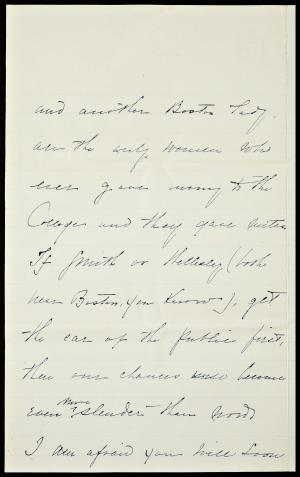 and another Boston Lady,
are the only women who
ever gave money to the
College and they gave
If Smith or Wellesley (both
near Boston, you know), get
the ear of the public first,
then our chances will become
even more slender than now.
I am afraid you will soon